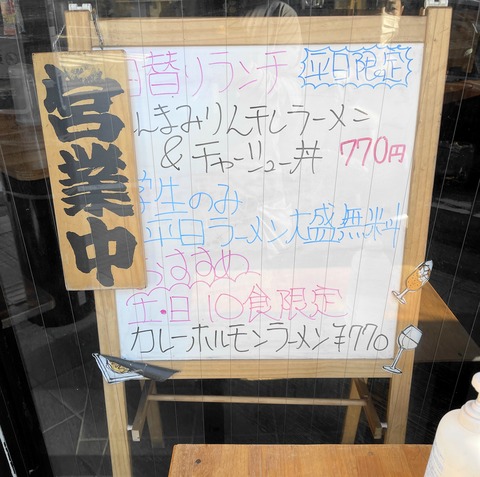 営業中
日替りランチ 平日限定
んまみりん干しラーメン
& チャーシュー丼 770円
学生のみ
平日ラーメン大盛無料
おすすめ
土・日 10食限定
カレーホルモンラーメン ¥770